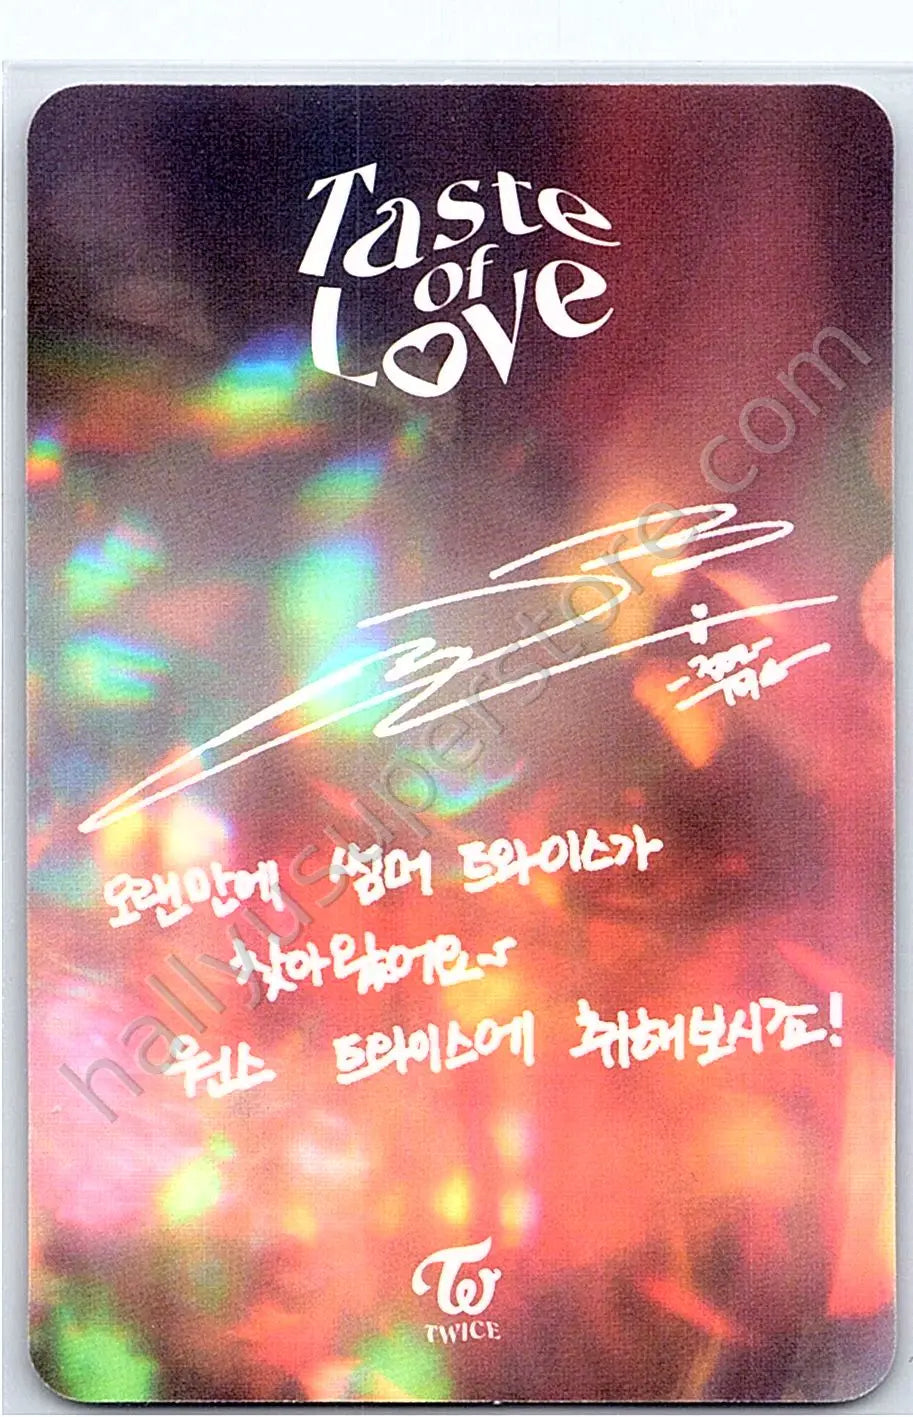 Taste
of
Love
오랜만에 썸머 트와이스가
찾아왔어요~
원스 트와이스에 취해보시죠!
TWICE
hallyusuperstore.com